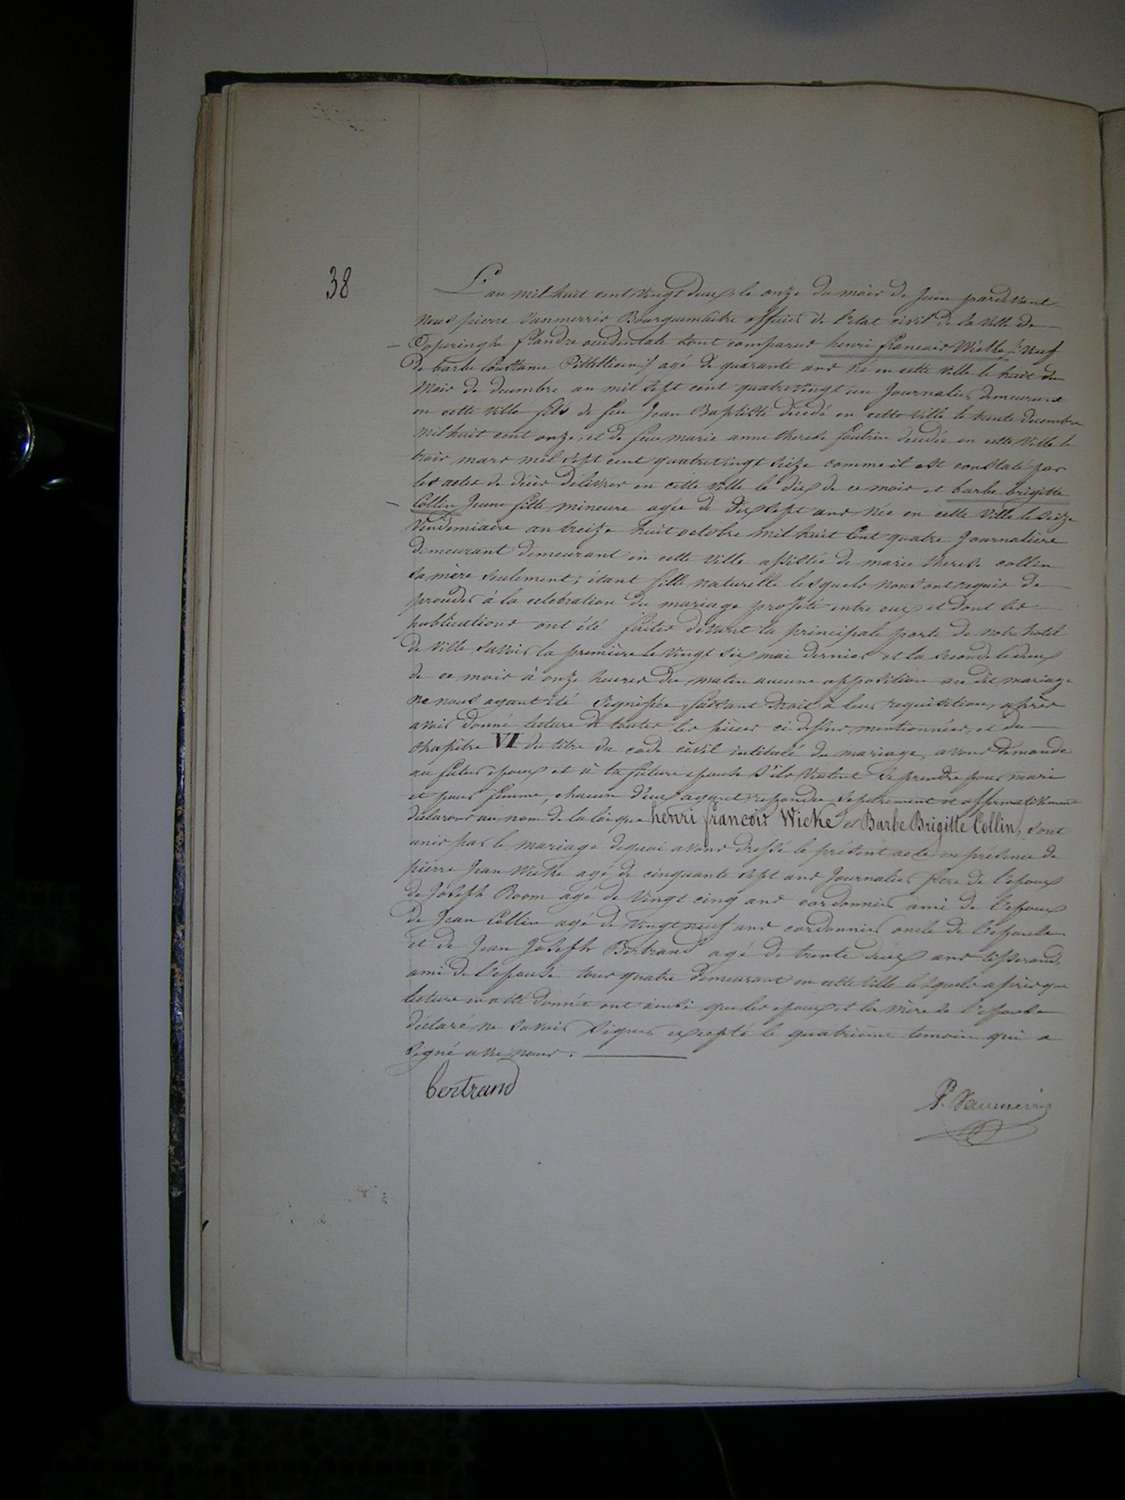 38
L'an mil huit cent vingt deux le onze du mois de Juin pardevant
Nous pierre Vanmerris Bourguemaitre officier de l'etat civil de la ville de
Poperinghe flandre occidentale sont comparus henri francois Wicke Veuf
de barbe Constance agé de quarante ans né en cette ville le huit du
Mois de decembre an mil sept cent quatrevingt un Journalier demeurant
en cette ville fils de feu Jean Baptiste décédé en cette ville le trente decembre
mil huit cent onze, et de feue marie anne therese decédée en cette ville le
trois mars mil sept cent quatrevingt seize comme il est constaté par
les actes de décès délivrés en cette ville le dix de ce mois et barbe brigitte
Collin Jeune fille mineure agée de Dixsept ans née en cette ville le seize
Vendemiaire an treize huit octobre mil huit Cent quatre Journaliere
demeurant demeurant en cette ville assistée de marie therese collin
sa mère seulement, étant fille naturelle lesquels nous ont requis de
proceder à la celebration du mariage projeté entre eux et dont les
publications ont été faites devant la principale porte de notre hotel
de ville savoir la première le vingt six mai dernier et la seconde le deux
de ce mois à onze heures du matin aucune opposition au dit mariage
ne nous ayant été signifiée, faisant droit à leur requisition, après
avoir donné lecture de toutes les pieces ci dessus mentionnées, et du
chapitre VI du titre du code civil intitulé du mariage, avons demandé
au futur époux et à la future epouse s'ils veulent se prendre pour mari
et pour femme, chacun d'eux ayant repondu separement et affirmativement
declarons au nom de la loi que henri francois Wicke et Barbe Brigitte Collin, sont
unis par le mariage dequoi avons dressé le présent acte en présence de
pierre Jean Wicke agé de cinquante sept ans Journalier frere de l'epoux
de Joseph Boom agé de vingt cinq ans cordonnier ami de l'epoux
de Jean Collin agé de vingt neuf ans cordonnier oncle de l'epouse
et de Jean Joseph Bertrand agé de trente deux ans tisserand
ami de l'epouse tous quatre demeurant en cette ville lesquels après que
lecture en a été donnée ont ainsi que les epoux et la mère de l'epouse
déclaré ne savoir signer excepté le quatrieme temoin qui a
signé avec nous.
bertrand
P. Vanmerris